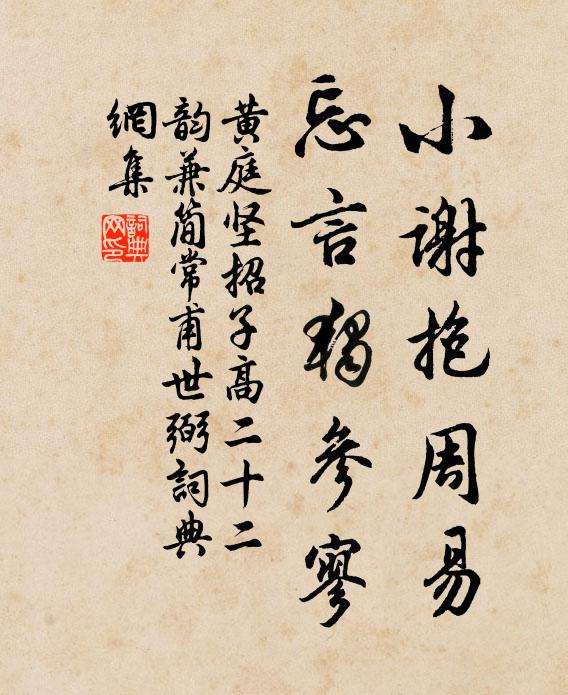 小謝抱周易
忘言獨參寥
黃庭坚招子高二十二
韵兼简常甫世弼詞典
網集
詞典網印